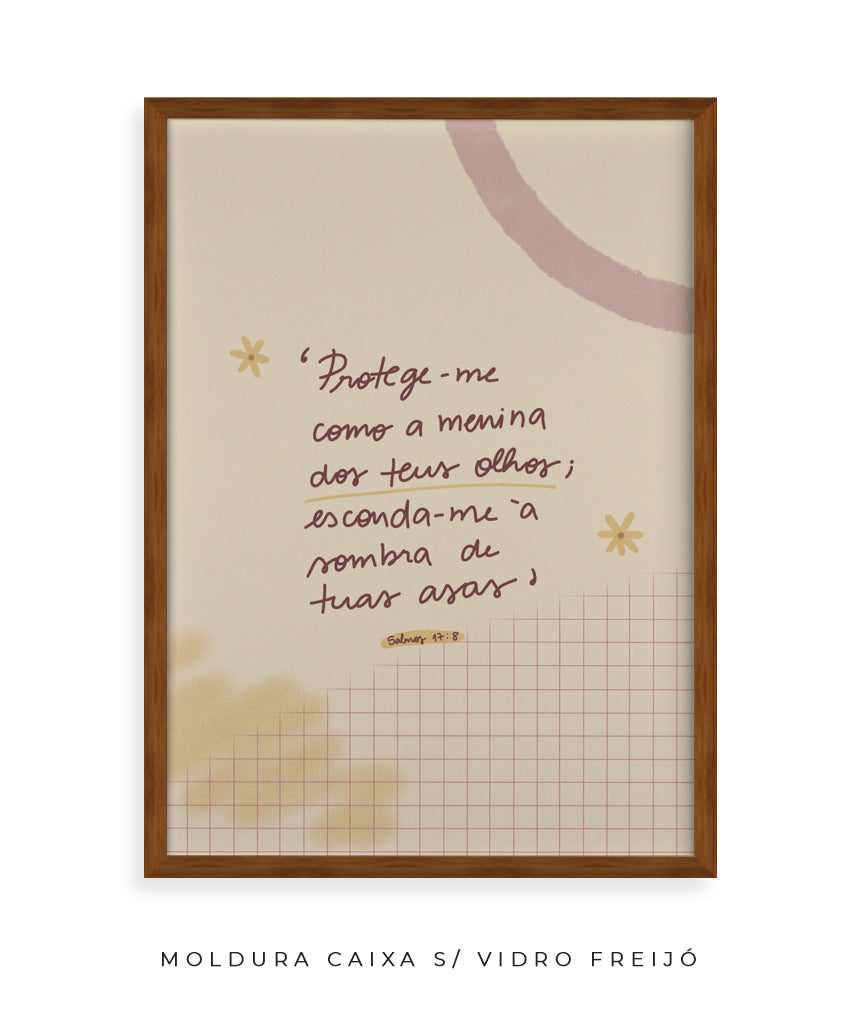 ‘Protege-me
como a menina
dos teus olhos;
esconda-me à
sombra de
tuas asas’
Salmos 17:8
MOLDURA CAIXA S/ VIDRO FREIJÓ